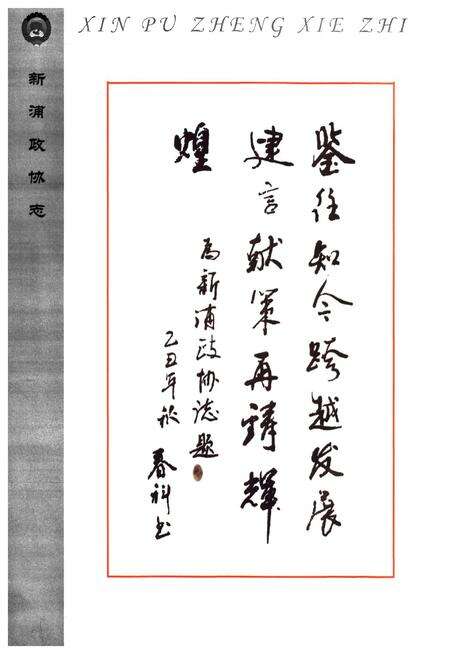 XIN PU ZHENG XIE ZHI
新浦政协志
鉴往知今跨越发展
建言献策再铸辉
煌
为新浦政协志题
乙丑年秋
春科书